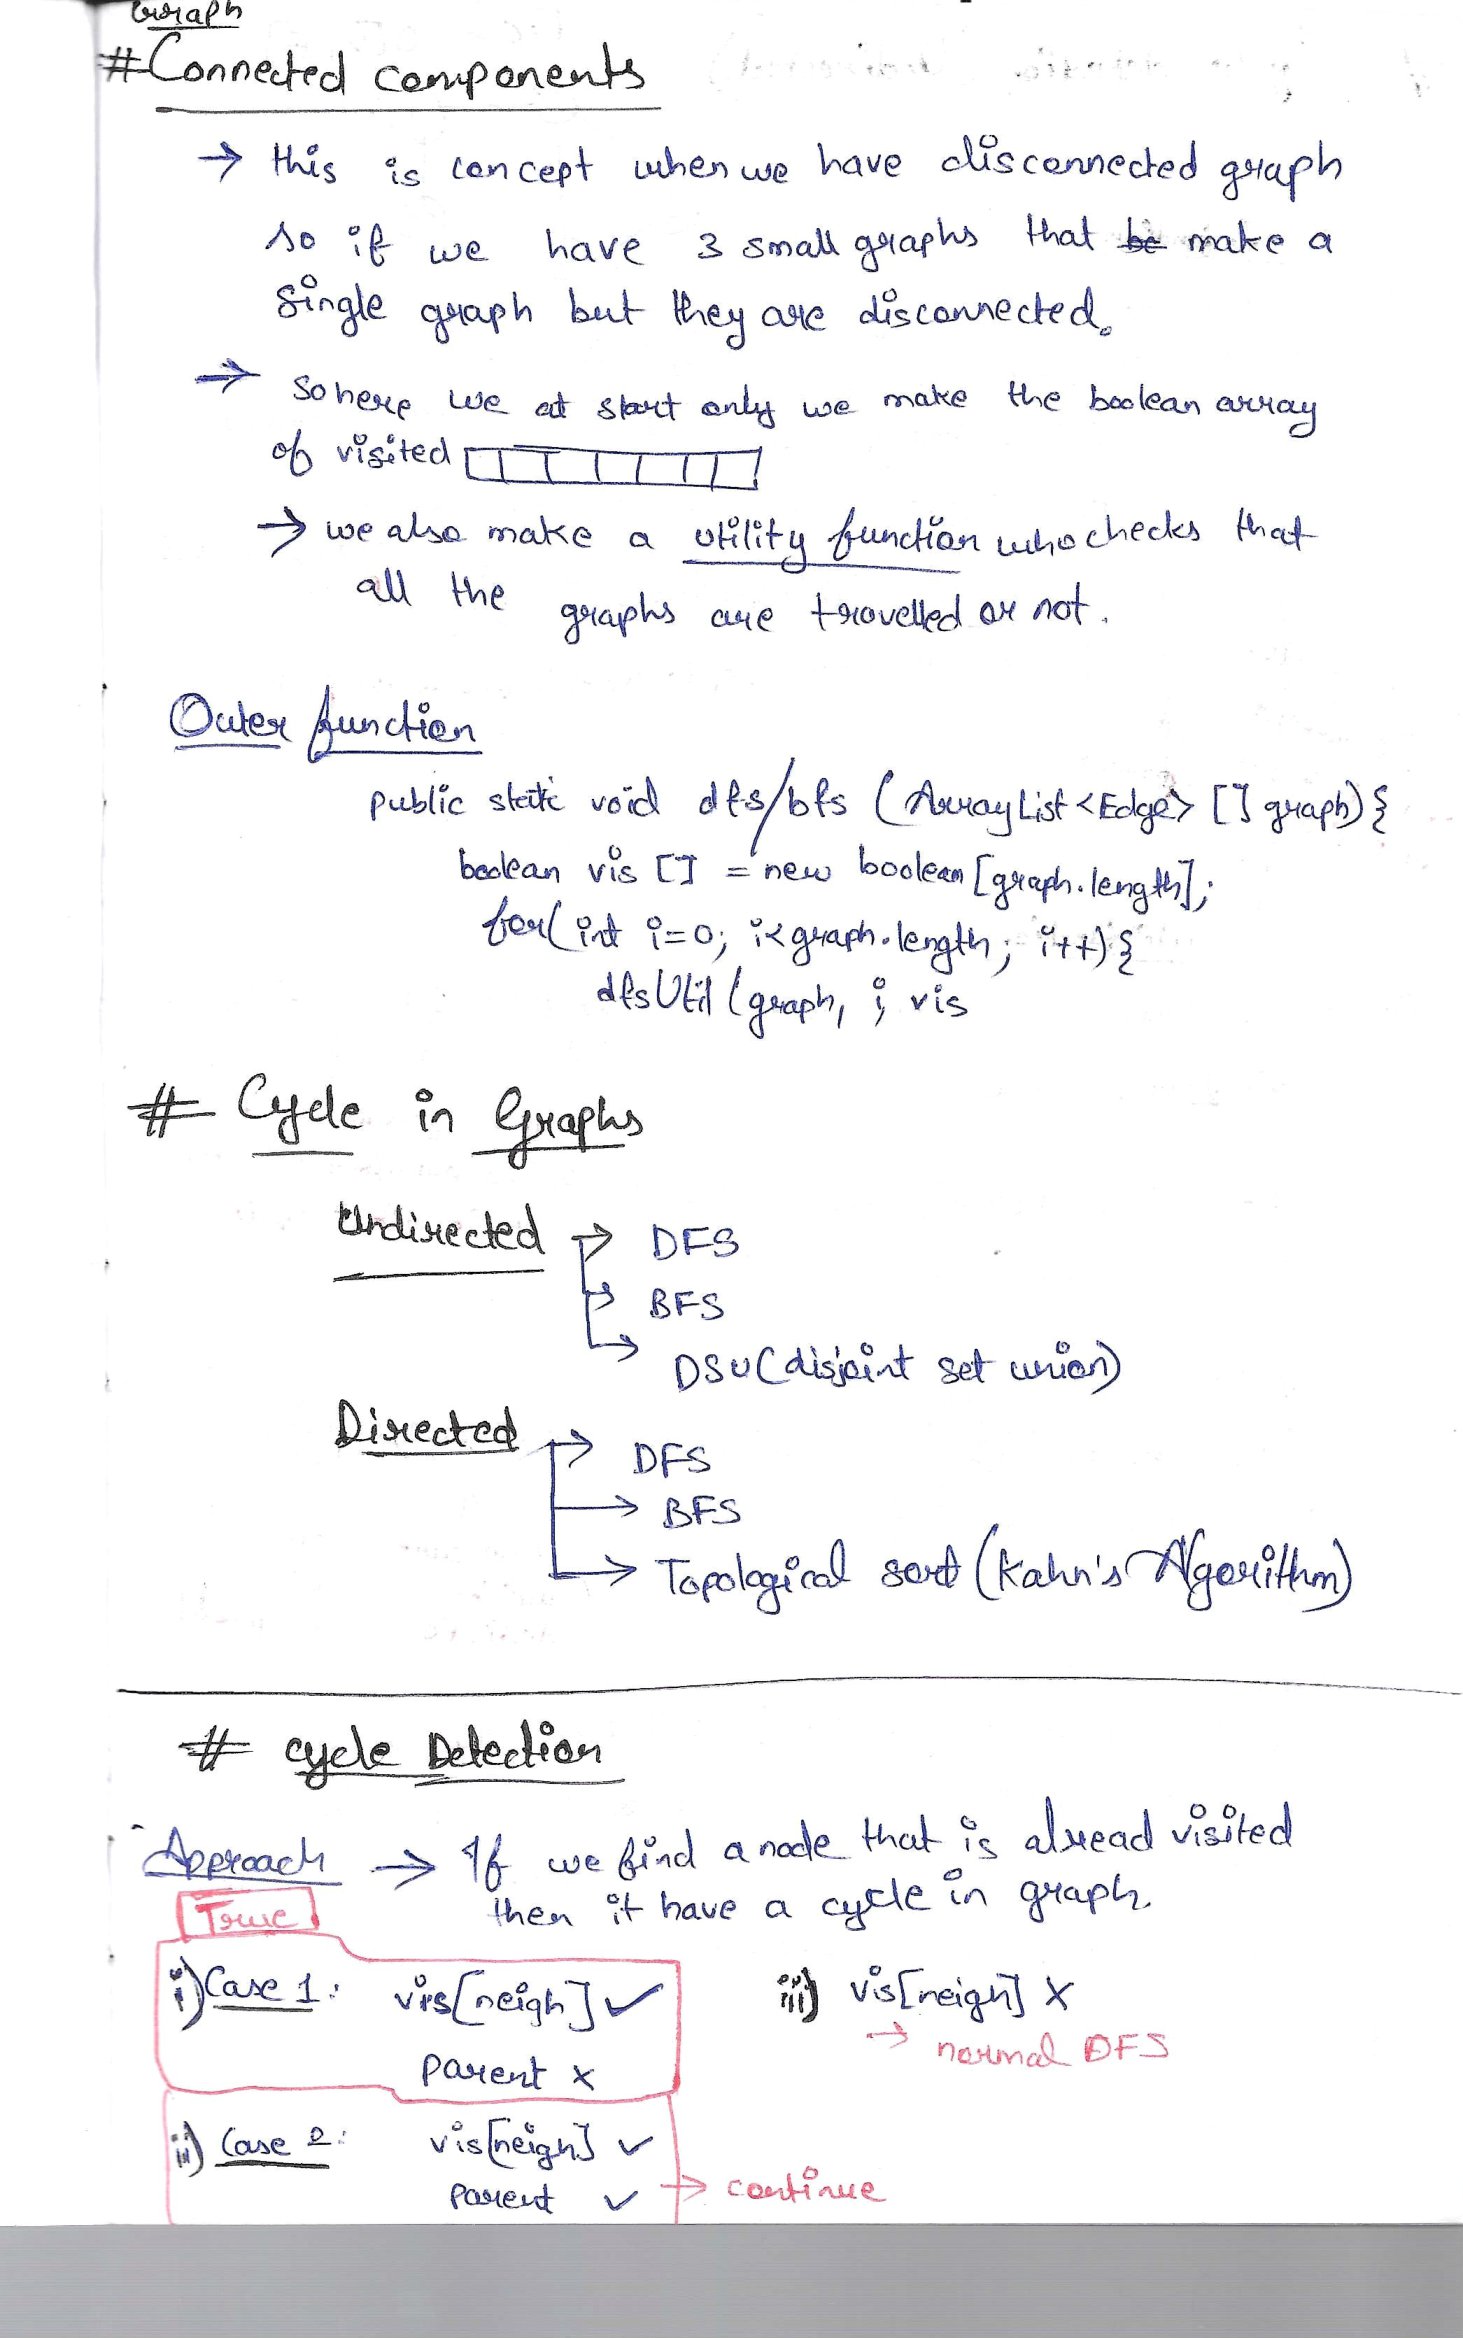 Graph
# Connected components
→ this is concept when we have disconnected graph
so if we have 3 small graphs that be make a
single graph but they are disconnected.
→ so here we at start only we make the boolean array
of visited
→ we also make a utility function who checks that
all the graphs are travelled or not.
Outer function
public static void dfs/bfs (ArrayList<Edge> [] graph) {
boolean vis [] = new boolean [graph.length];
for(int i=0; i<graph.length; i++) {
dfsUtil (graph, i, vis
# Cycle in Graphs
Undirected → DFS
→ BFS
→ DSU (disjoint set union)
Directed → DFS
→ BFS
→ Topological sort (Kahn's Algorithm)
# cycle Detection
Approach → If we find a node that is alread visited
then it have a cycle in graph.
True
i) Case 1: vis[neigh] ✓
parent x
iii) vis[neigh] x
→ normal DFS
ii) Case 2: vis[neigh] ✓
parent ✓ → continue